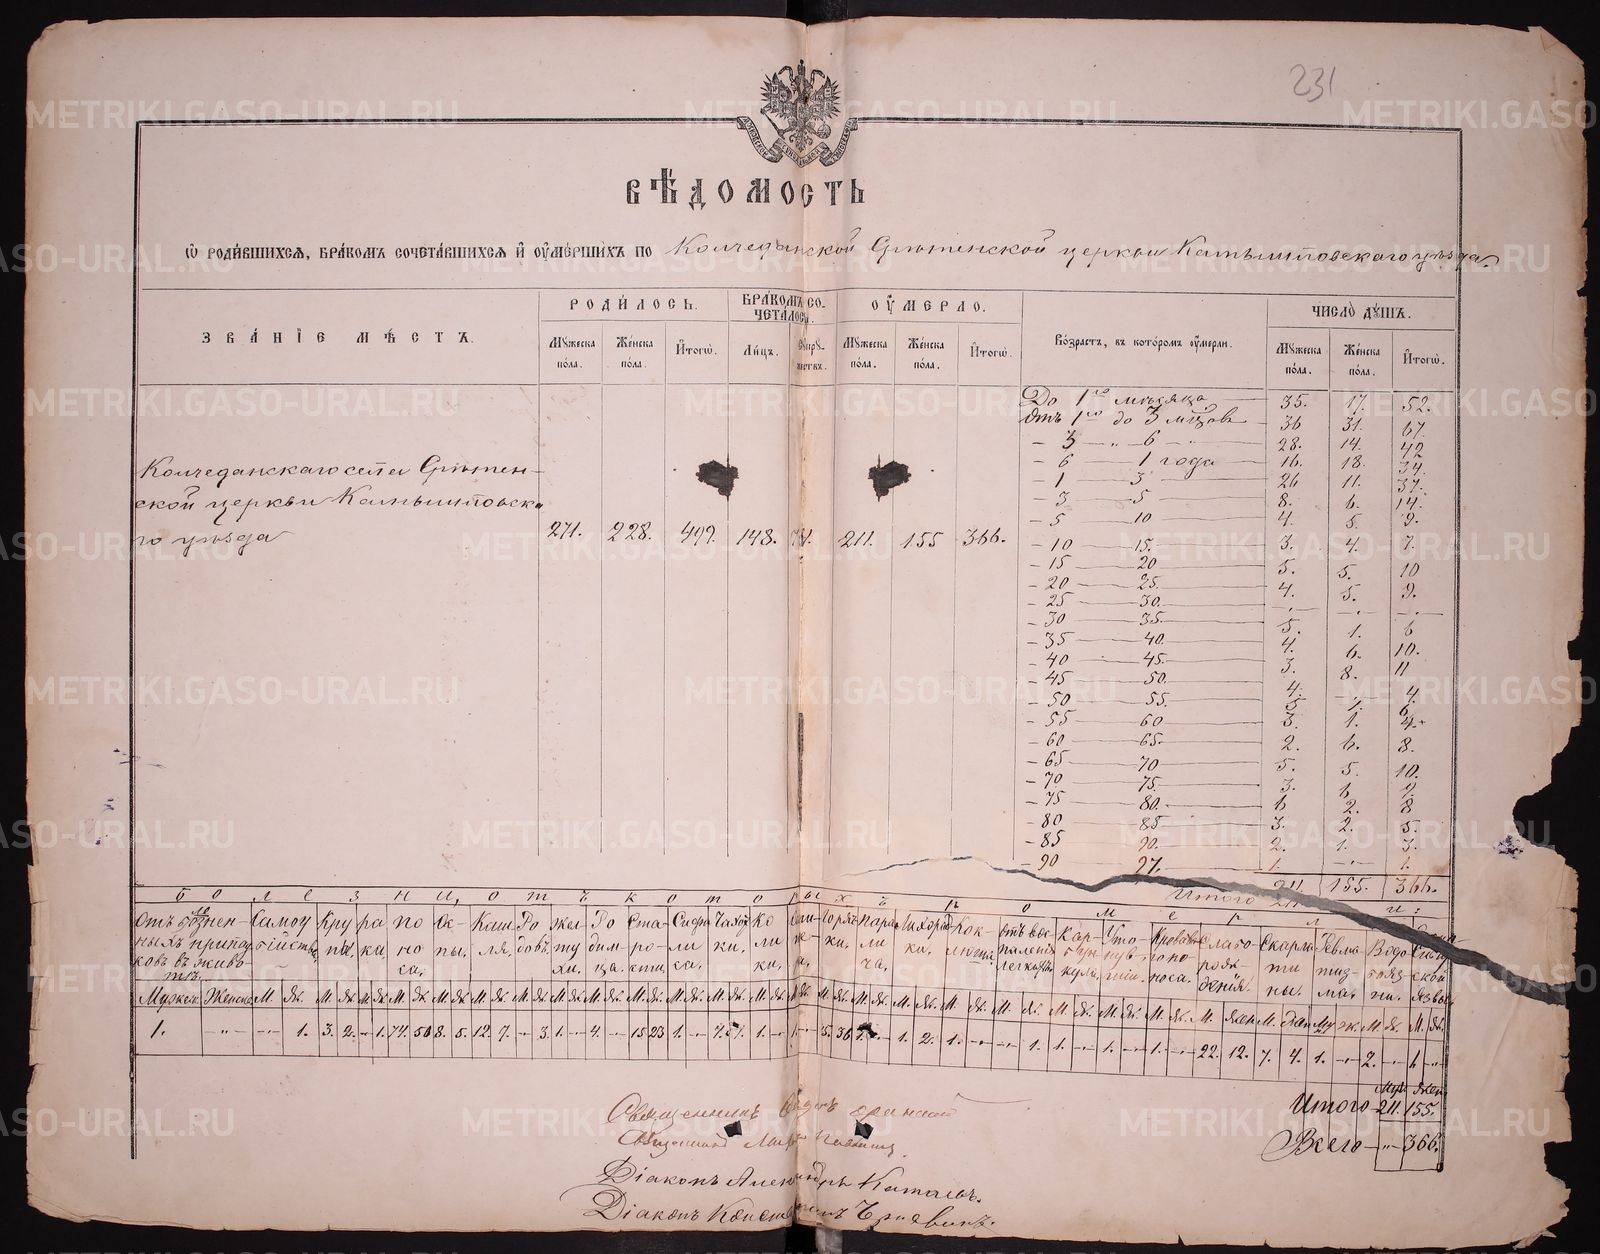 231
ВѢДОМОСТЬ
Ѡ РОДИВШИХСЯ, БРАКОМЪ СОЧЕТАВШИХСЯ И ОУМЕРШИХЪ ПО Колчеданской Срѣтенской церкви Камышловскаго уѣзда.
ЗВАНІЕ МѢСТЪ.
РОДИЛОСЬ.
БРАКОМЪ СОЧЕТАЛОСЬ.
ОУМЕРЛО.
Возрастъ, въ которомъ оумерли.
ЧИСЛО ДУШЪ.
Мужеска пола. Женска пола. Итогѡ. Лицъ. Мужеска пола. Женска пола. Итогѡ. Мужеска пола. Женска пола. Итогѡ.
Колчеданскаго села Срѣтен-
ской церкви Камышловска-
го уѣзда 271. 228. 499. 148. 211. 155 366.
До 1го мѣсяца 35. 17. 52.
Отъ 1го до 3 мѣсяцов 36 31. 67.
- 3 - " - 6 - " 28. 14. 42
- 6 — 1 года 16. 18. 34.
- 1 — 3 26 11. 37.
- 3 — 5 8. 6. 14.
- 5 — 10 4. 5. 9.
- 10 — 15. 3. 4. 7.
- 15 — 20 5. 5. 10
- 20 — 25. 4. 5. 9.
- 25 — 30. - - -
- 30 — 35. 5. 1. 6
- 35 — 40. 4. 6. 10.
- 40 — 45. 3. 8. 11
- 45 — 50. 4. - 4.
- 50 — 55. 5 1. 6
- 55 — 60 3. 1. 4.
- 60 — 65. 2. 6. 8.
- 65 — 70 5. 5. 10.
- 70 — 75. 3. 6 9.
- 75 — 80. 6 2. 8
- 80 — 85. 3. 2. 5.
- 85 — 90. 2. 1. 3.
- 90 — 97. 1. - 1.
Итого 211. 155. 366.
Болезни, отъ которыхъ померли:
Самоубійства Крупы Рака Поноса. Оспы. Кашля. Родовъ Желтухи. Родимца. Старости. Сифилиса. Чахотки. Колики. Горячки. Паралича. Лихорадки. Коклюша. отъ воспаленія легкихъ Карбункула. Кроваваго поноса. Слаборожденія. Скарлатины. Ревматизма. Водобоязни. Сибирской язвы.
Мужск. Женска М. Ж.
1. - " - - 1. 3. 2. - 1. 74. 50 8. 5. 12. 7. - 3. 1. - 4. - 15 23 1. - 7. 1. - 5. 36 - 1. 2. 1. - - - 1. 1. - 1. - 1. - 22. 12. 7. 4. 1. - 2. - 1 -
Муж Жен
Итого 211. 155.
Всего - " - 366.
Священникъ
Священникъ
Діаконъ Александръ
Діаконъ
METRIKI.GASO-URAL.RU